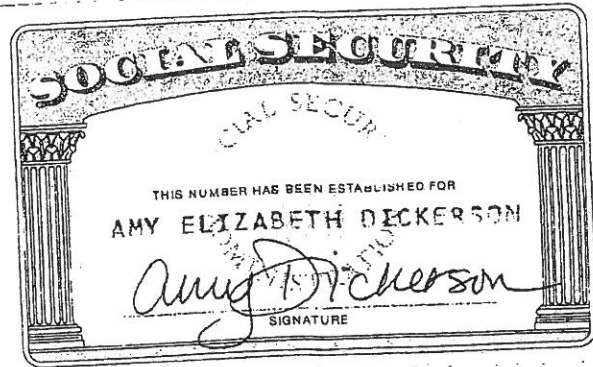 SOCIAL SECURITY
CIAL SECUR
THIS NUMBER HAS BEEN ESTABLISHED FOR
AMY ELIZABETH DICKERSON
Amy Dickerson
SIGNATURE